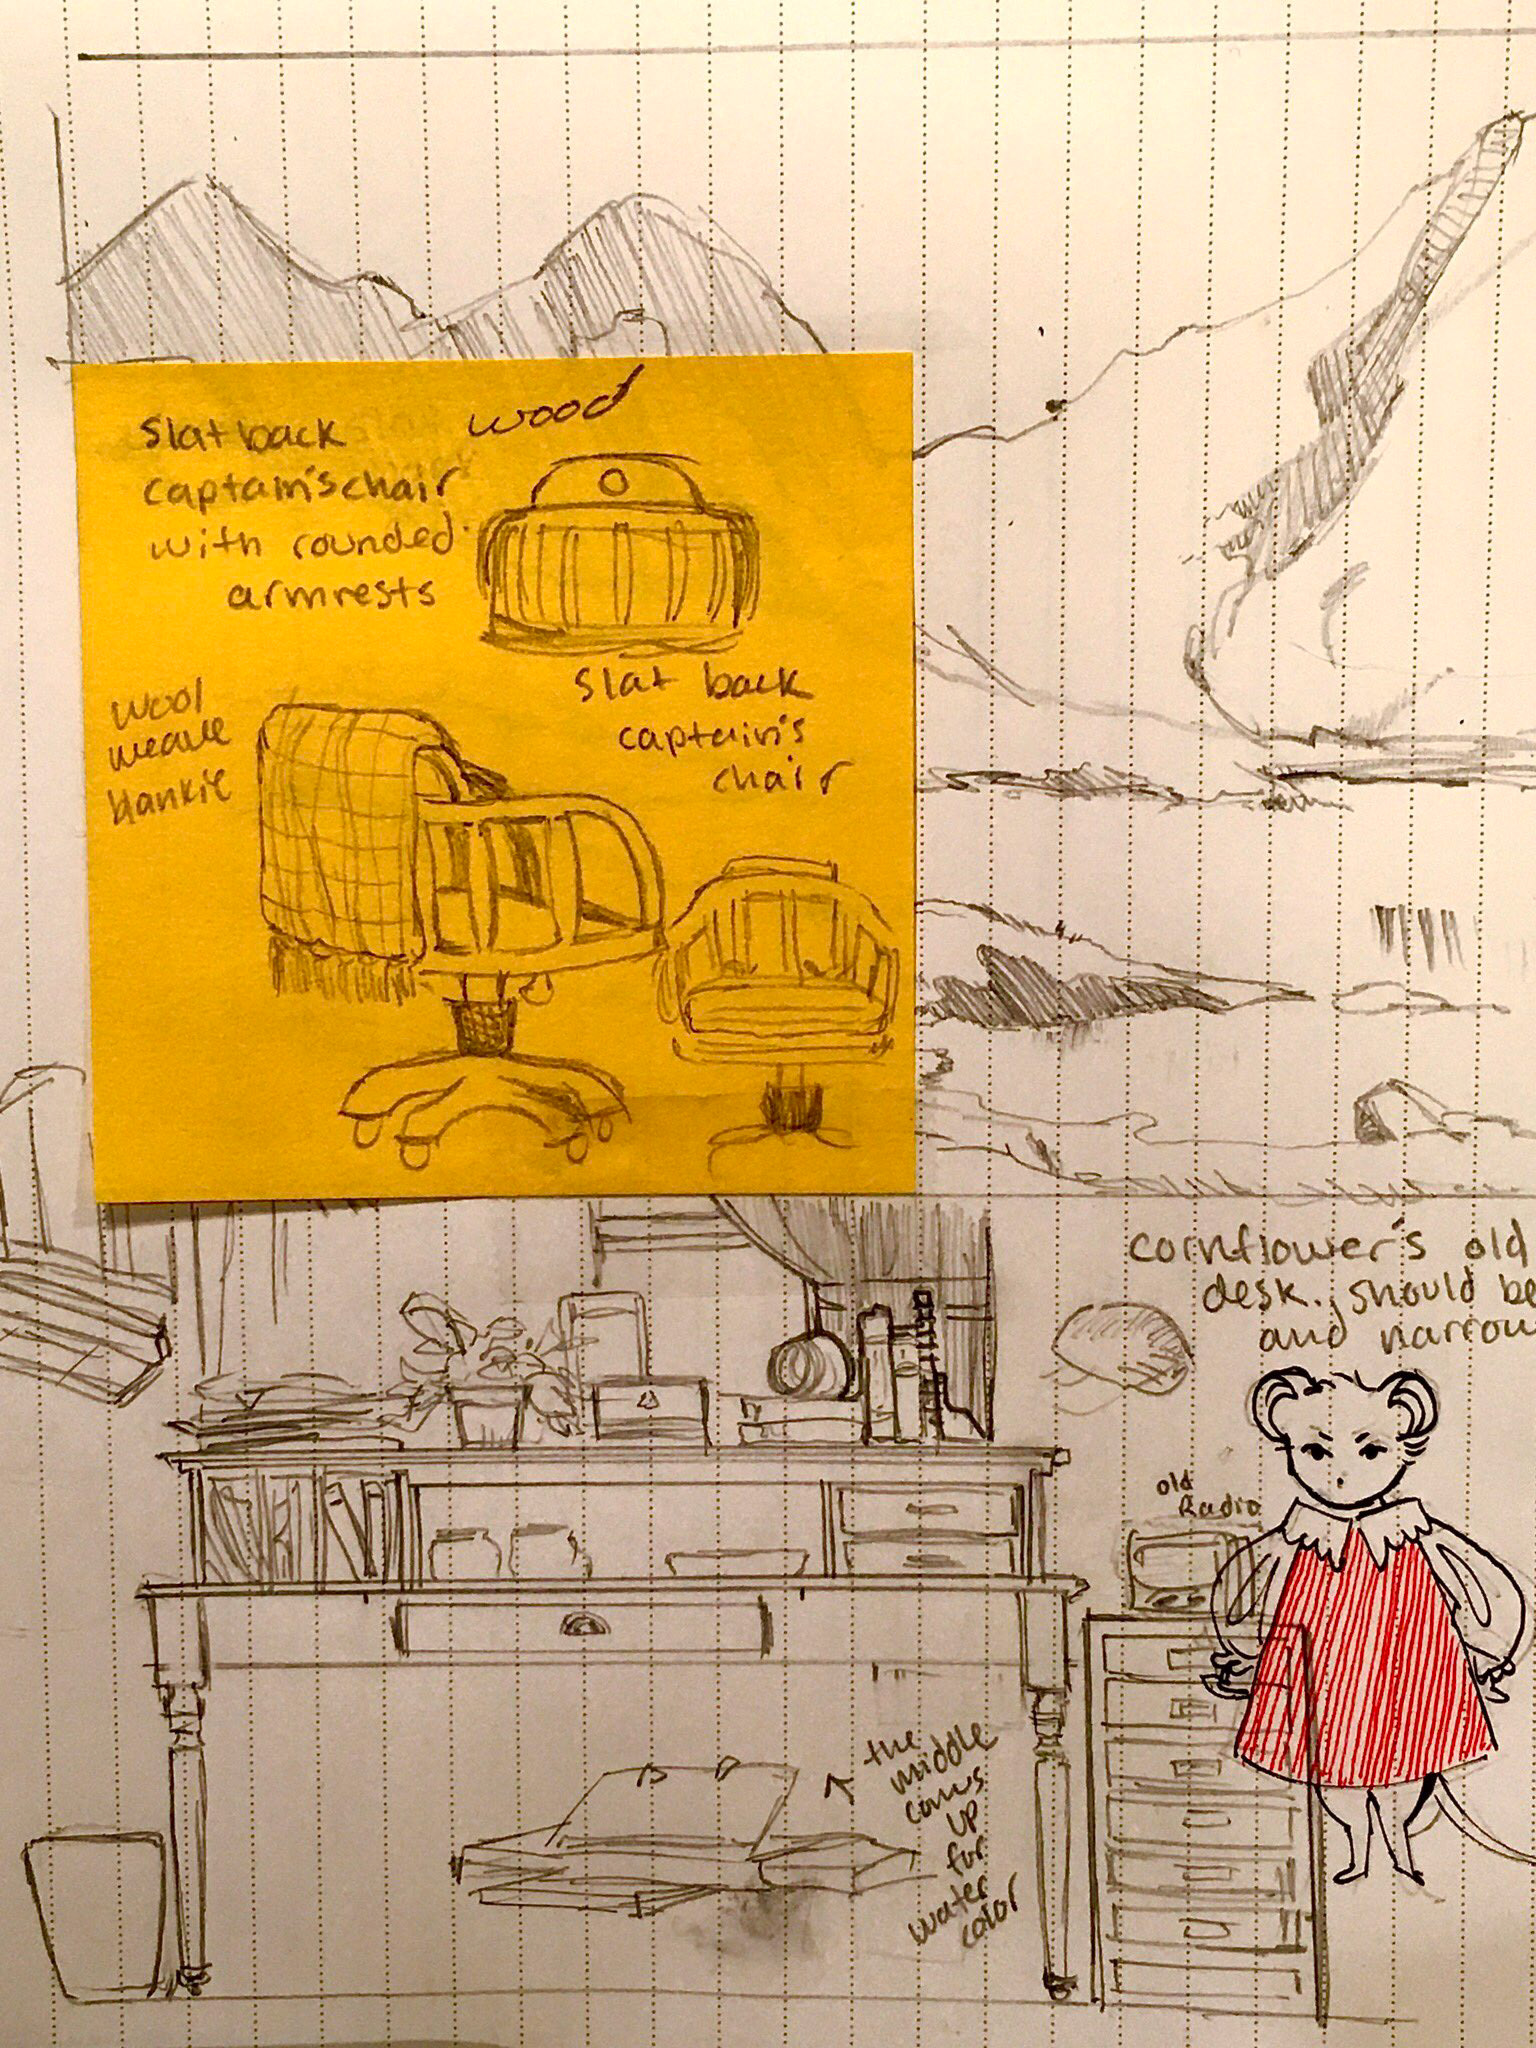 wood
Slat back
captain's chair
with rounded
armrests
Slat back
captain's
chair
wool
weave
blankie
cornflower's old
desk. should be
and narrow
old
Radio
the
middle
comes
up
for
water
color